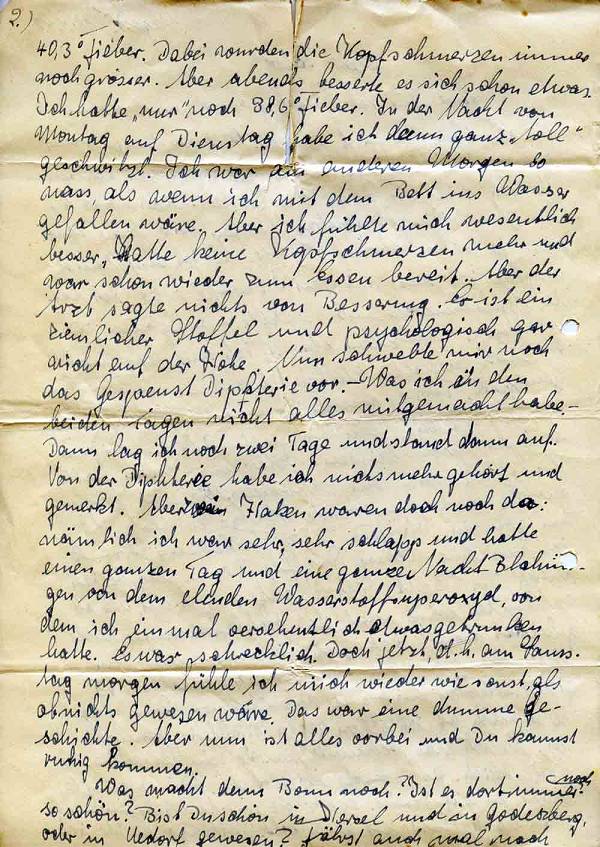 2.)
40,3° Fieber. Dabei wurden die Kopfschmerzen immer
noch grösser. Aber abends besserte es sich schon etwas.
Ich hatte „nur" noch 38,6° Fieber. In der Nacht von
Montag auf Dienstag habe ich dann ganz „toll"
geschwitzt. Ich war am anderen Morgen so
nass, als wenn ich mit dem Bett ins Wasser
gefallen wäre. Aber ich fühlte mich wesentlich
besser, hatte keine Kopfschmerzen mehr und
war schon wieder zum Essen bereit. Aber der
Arzt sagte nichts von Besserung. Er ist ein
ziemlicher Stoffel und psychologisch gar
nicht auf der Höhe. Nun schwebte mir noch
das Gespenst Diphterie vor. – Was ich in den
beiden Tagen nicht alles mitgemacht habe. –
Dann lag ich noch zwei Tage und stand dann auf.
Von der Diphterie habe ich nichts mehr gehört und
gemerkt. Aber Haken waren doch noch da:
nämlich ich war sehr, sehr schlapp und hatte
einen ganzen Tag und eine ganze Nacht Blähun-
gen von dem elenden Wasserstoffsuperoxyd, von
dem ich einmal versehentlich etwas getrunken
hatte. Es war schrecklich. Doch jetzt, d.h. am Sams-
tag morgen fühle ich mich wieder wie sonst, als
ob nichts gewesen wäre. Das war eine dumme Ge-
schichte. Aber nun ist alles vorbei und Du kannst
ruhig kommen.
Was macht denn Bonn noch? Ist es dort immer noch
so schön? Bist Du schon in Hersel und in Godesberg,
oder in Uedorf gewesen? Fährst auch mal nach